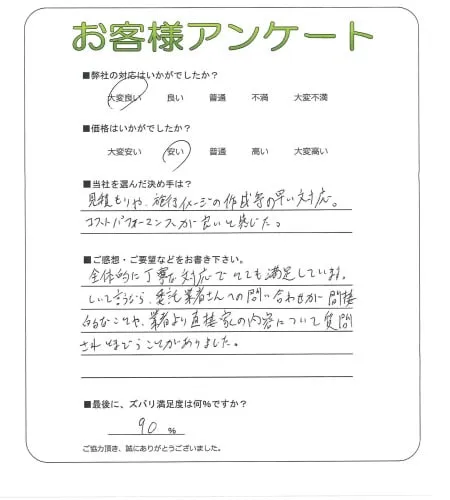 お客様アンケート
■弊社の対応はいかがでしたか?
大変良い 良い 普通 不満 大変不満
■価格はいかがでしたか?
大変安い 安い 普通 高い 大変高い
■当社を選んだ決め手は?
見積もりや、施行イメージの作成等の早い対応。
コストパフォーマンスが良いと感じた。
■ご感想・ご要望などをお書き下さい。
全体的に丁寧な対応でとても満足しています。
しいて言うなら、委託業者さんへの問い合わせが間接
的なことや、業者より直接家の内容について質問
され とまどうことがありました。
■最後に、ズバリ満足度は何%ですか?
90 %
ご協力頂き、誠にありがとうございました。